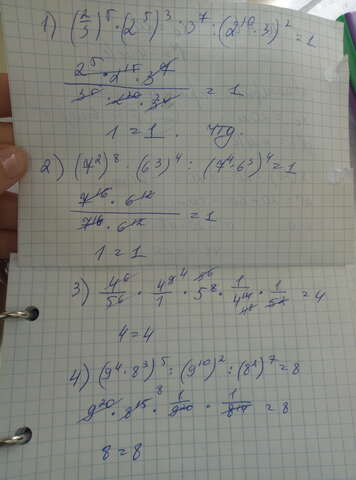 1) (2/3)^5 · (2^5)^3 · 3^7 : (2^10 · 3)^2 = 1
2^5 · 2^15 · 3^7 / 3^5 · 2^20 · 3^2 = 1
1 = 1 . чтд.
2) (7^2)^8 · (6^3)^4 : (7^4 · 6^3)^4 = 1
7^16 · 6^12 / 7^16 · 6^12 = 1
1 = 1
3) 4^6/5^6 · 4^9/1 · 5^8 · 1/4^14 · 1/5^2 = 4
4 = 4
4) (9^4 · 8^3)^5 : (9^10)^2 : (8^2)^7 = 8
9^20 · 8^15 · 1/9^20 · 1/8^14 = 8
8 = 8